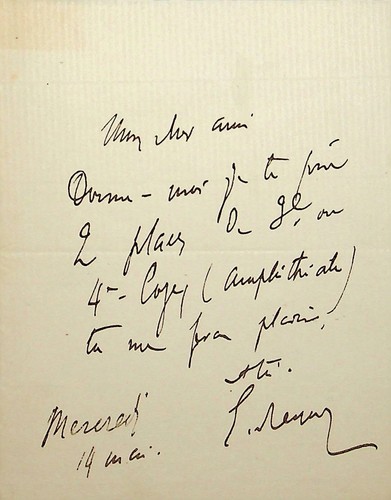 Mon cher ami
Donne-moi je te prie
2 places de 3e, ou
4e Loges (amphithéatre)
tu me feras plaisir,
Mercredi
14 mai.